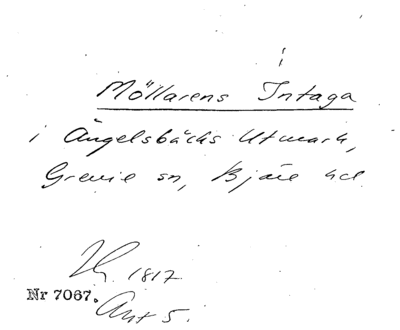 Möllarens Intaga
i Ängelsbäcks Utmark,
Grevie sn, Bjäre hd
1817
Nr 7067.
Akt 5.